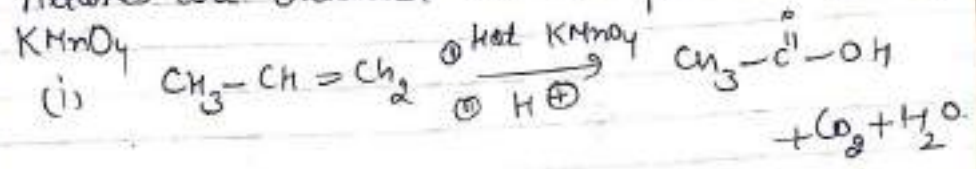 KMnO4
(i) CH3-CH=CH2 ① Hot KMnO4 CH3-C-OH
② H⊕ O
+CO2+H2O